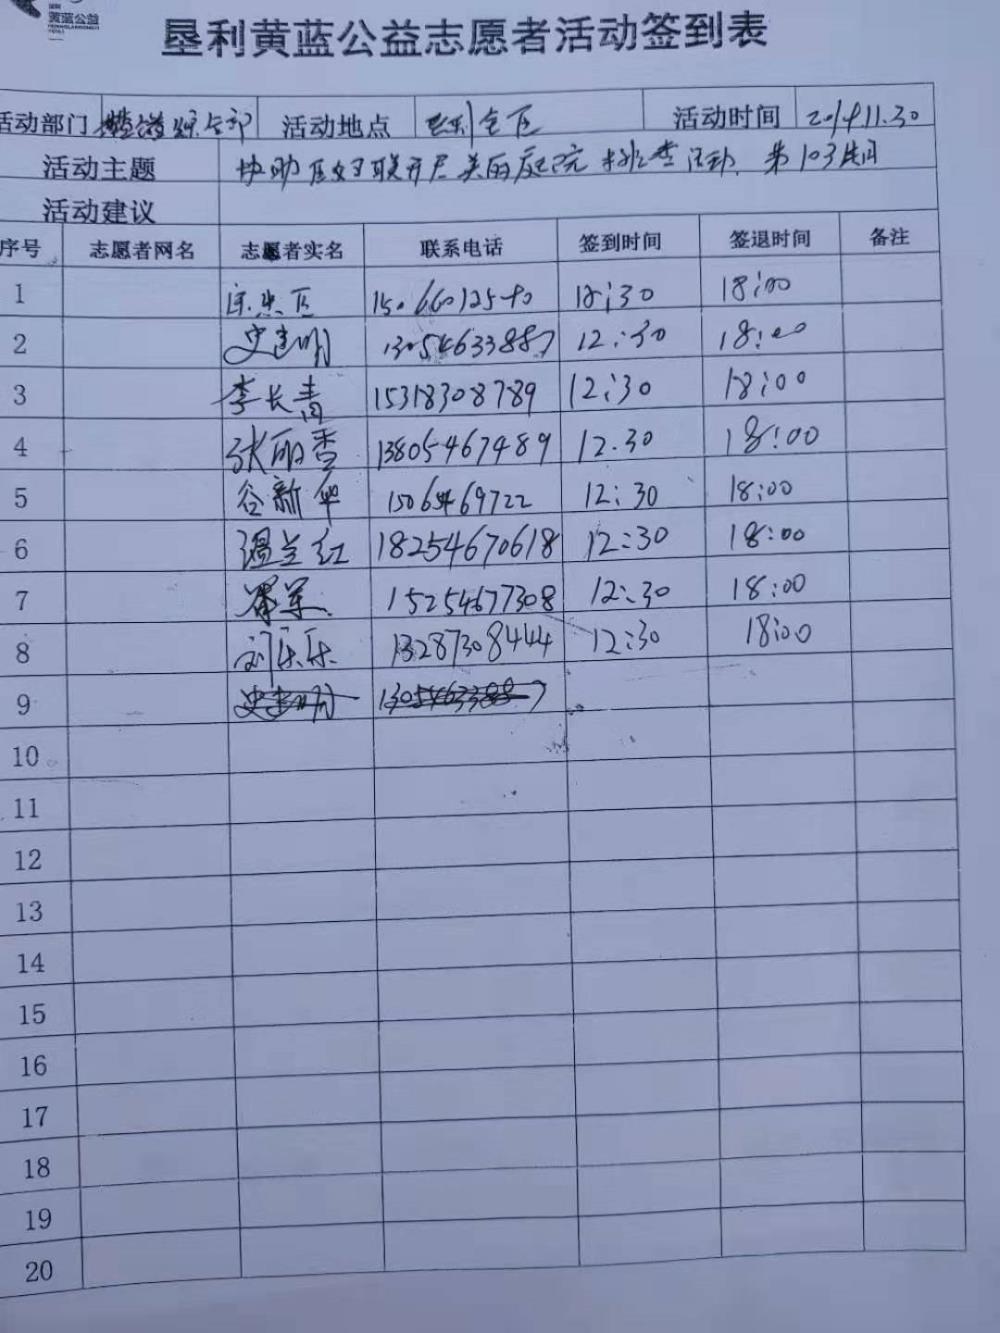 黄蓝公益
垦利黄蓝公益志愿者活动签到表
活动部门 活动地点 垦利全区 活动时间 2019.11.30
活动主题 协助区妇联开展美丽庭院排查活动.第103期
活动建议
序号 志愿者网名 志愿者实名 联系电话 签到时间 签退时间 备注
1 12:30 18:00
2 史建明 13054633887 12:30 18:00
3 李长青 15318308789 12:30 18:00
4 张丽香 13805467489 12.30 18:00
5 谷新华 15065469722 12:30 18:00
6 温兰红 18254670618 12:30 18:00
7 15254677308 12:30 18:00
8 刘乐乐 13287308444 12:30 18:00
9 史建明 13054633887
10
11
12
13
14
15
16
17
18
19
20